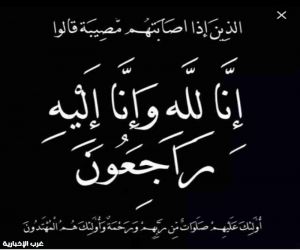 الذين إذا اصابتهم مصيبة قالوا
إنَّا لله وَإنَّا إليْهِ
رَاجِعُونَ
أولئك عليهم صلوات من ربهم ورحمة وأولئك هم المهتدون
غرب الإخبارية